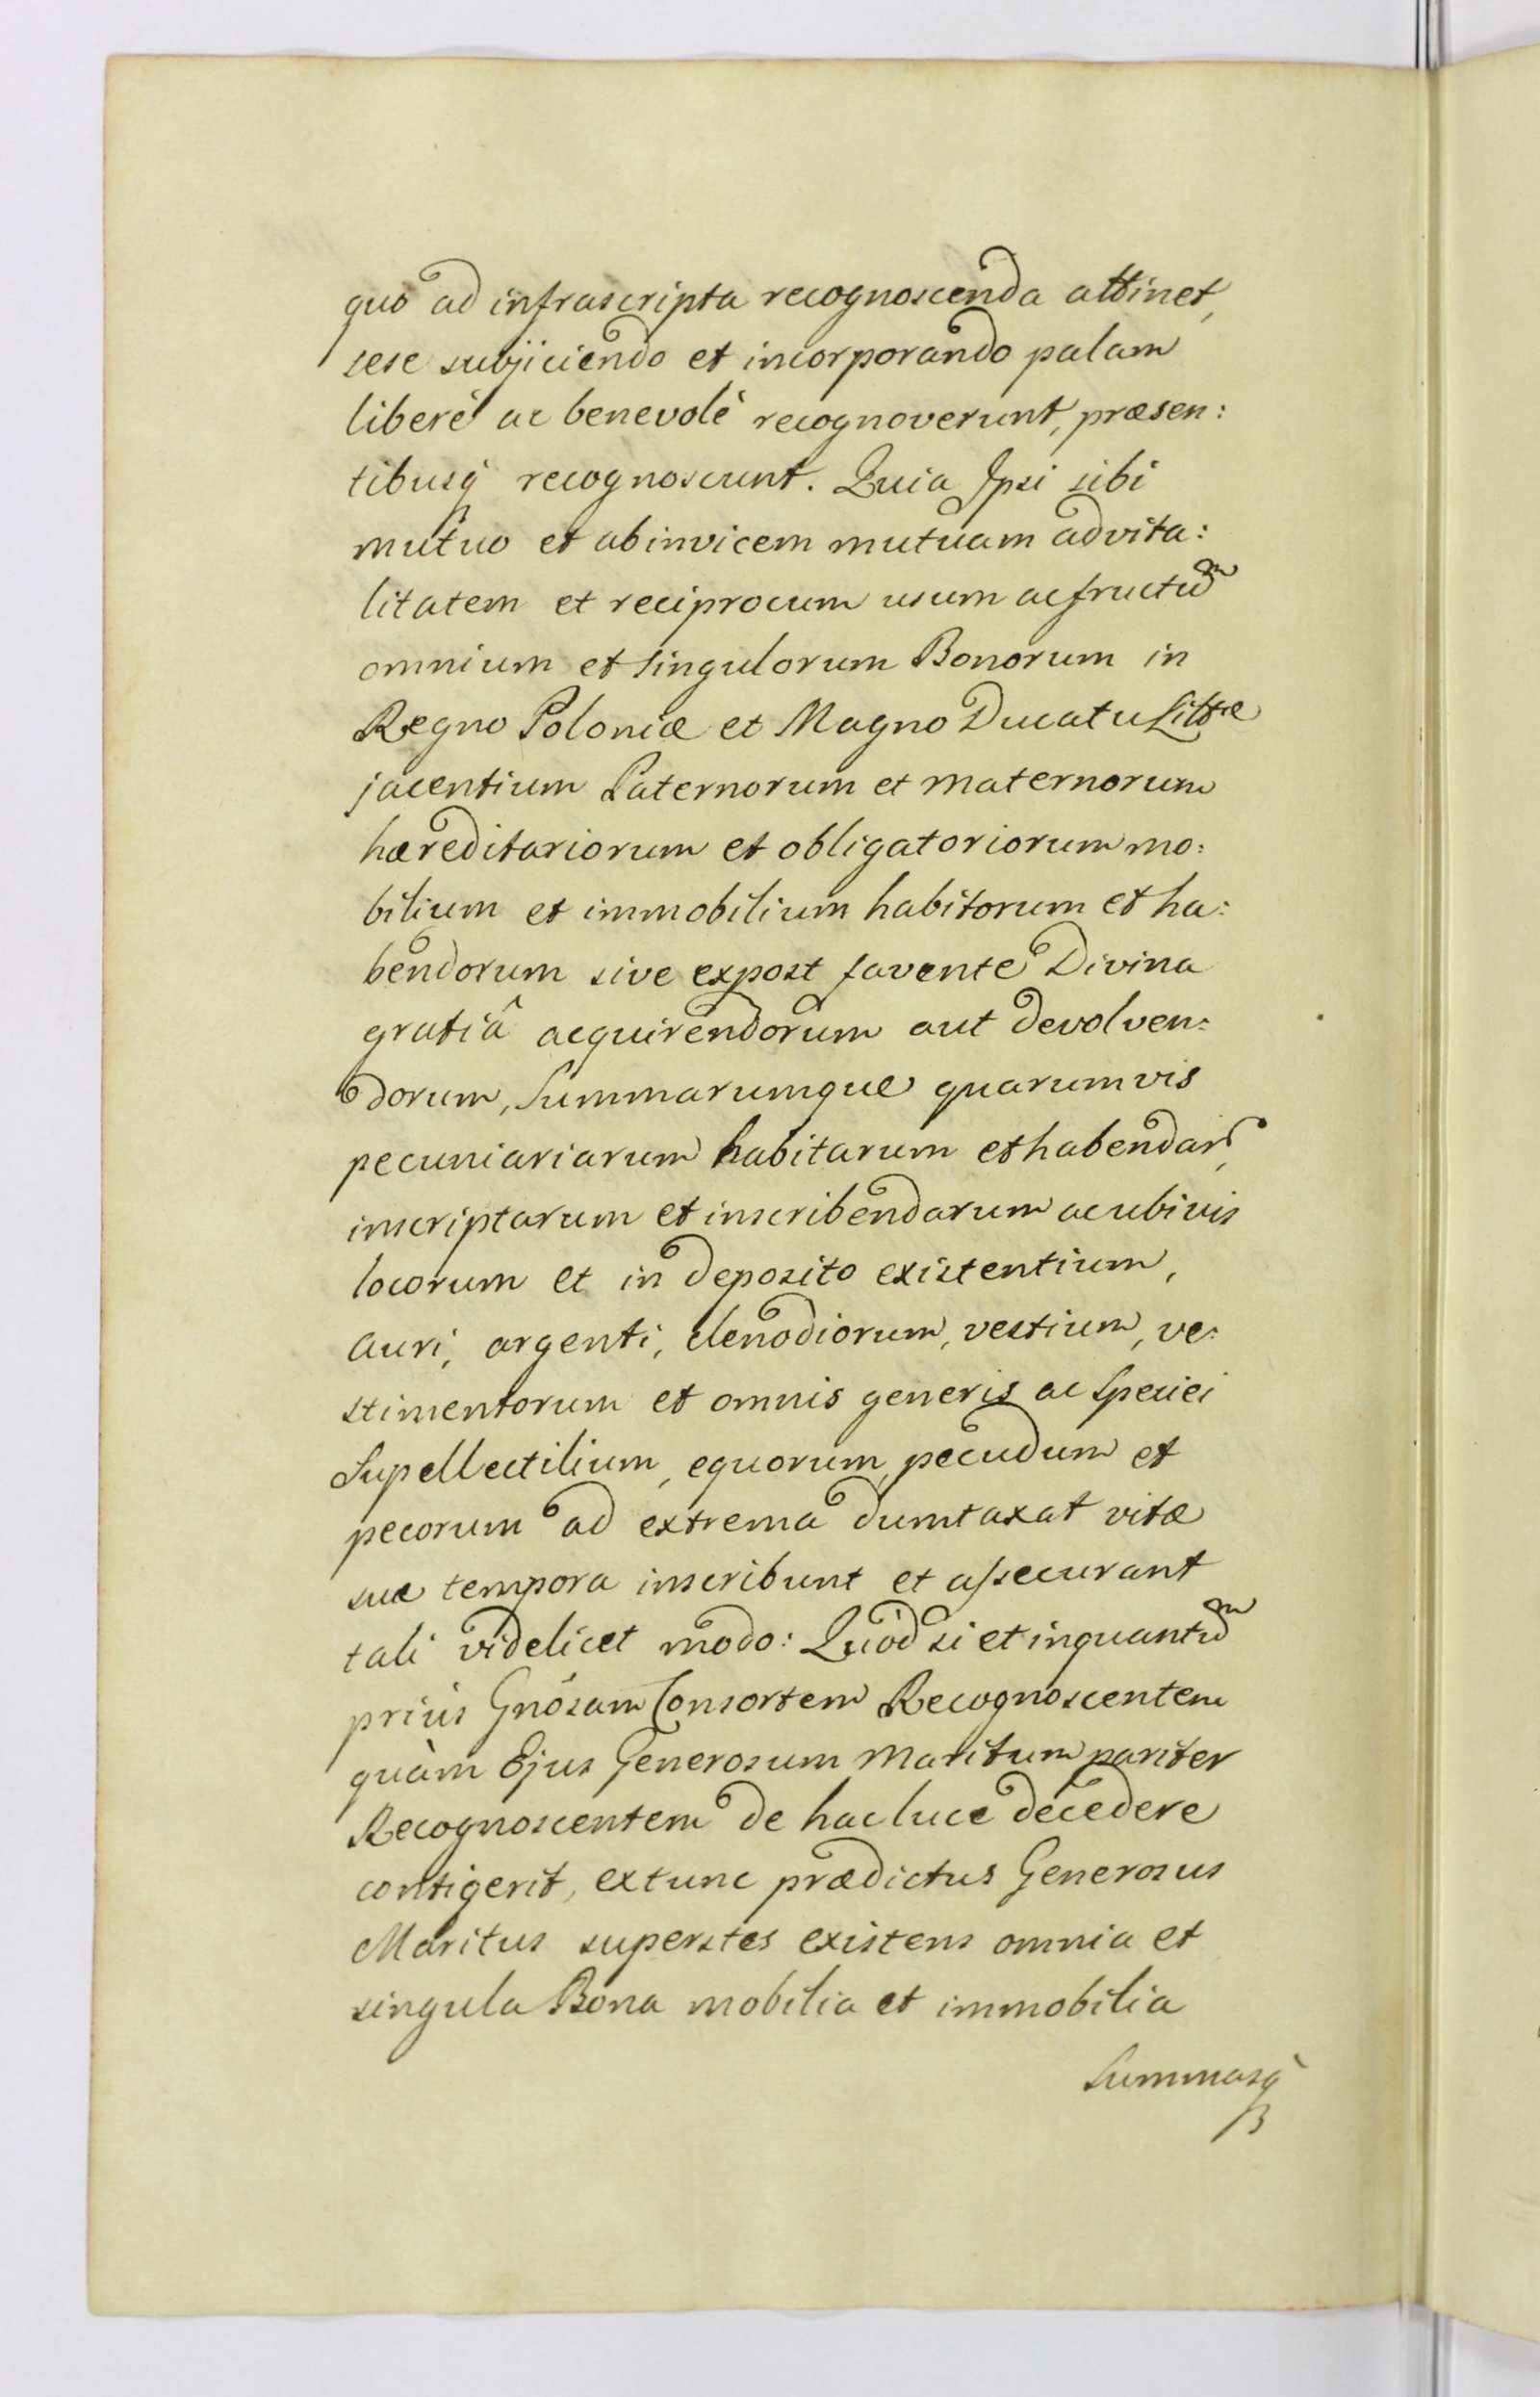 quo ad infrascripta recognoscenda attinet,
sese subjiciendo et incorporando palam
liberè ac benevolè recognoverunt, præsen:
tibusq recognoscunt. Quia Ipsi sibi
mutuo et abinvicem mutuam advita:
litatem et reciprocum usum ac fructum
omnium et singulorum Bonorum in
Regno Poloniæ et Magno Ducatu Littæ
jacentium Paternorum et maternorum
hæreditariorum et obligatoriorum mo:
bilium et immobilium habitorum et ha:
bendorum sive expost favente Divina
gratiâ acquirendorum aut devolven:
dorum, Summarumque quarumvis
pecuniariarum habitarum et habendar,
inscriptarum et inscribendarum ac ubivis
locorum et in deposito existentium,
auri, argenti, clenodiorum, vestium, ve:
stimentorum et omnis generis ac speciei
Supellectilium, equorum, pecudum et
pecorum ad extrema dumtaxat vitæ
suæ tempora inscribunt et assecurant
tali videlicet modo: Quòd si et inquantum
priùs Gnosam Consortem Recognoscentem
quàm Ejus Generosum Maritum pariter
Recognoscentem de hac luce decedere
contigerit, extunc prædictus Generosus
Maritus superstes existens omnia et
singula Bona mobilia et immobilia
Summasq